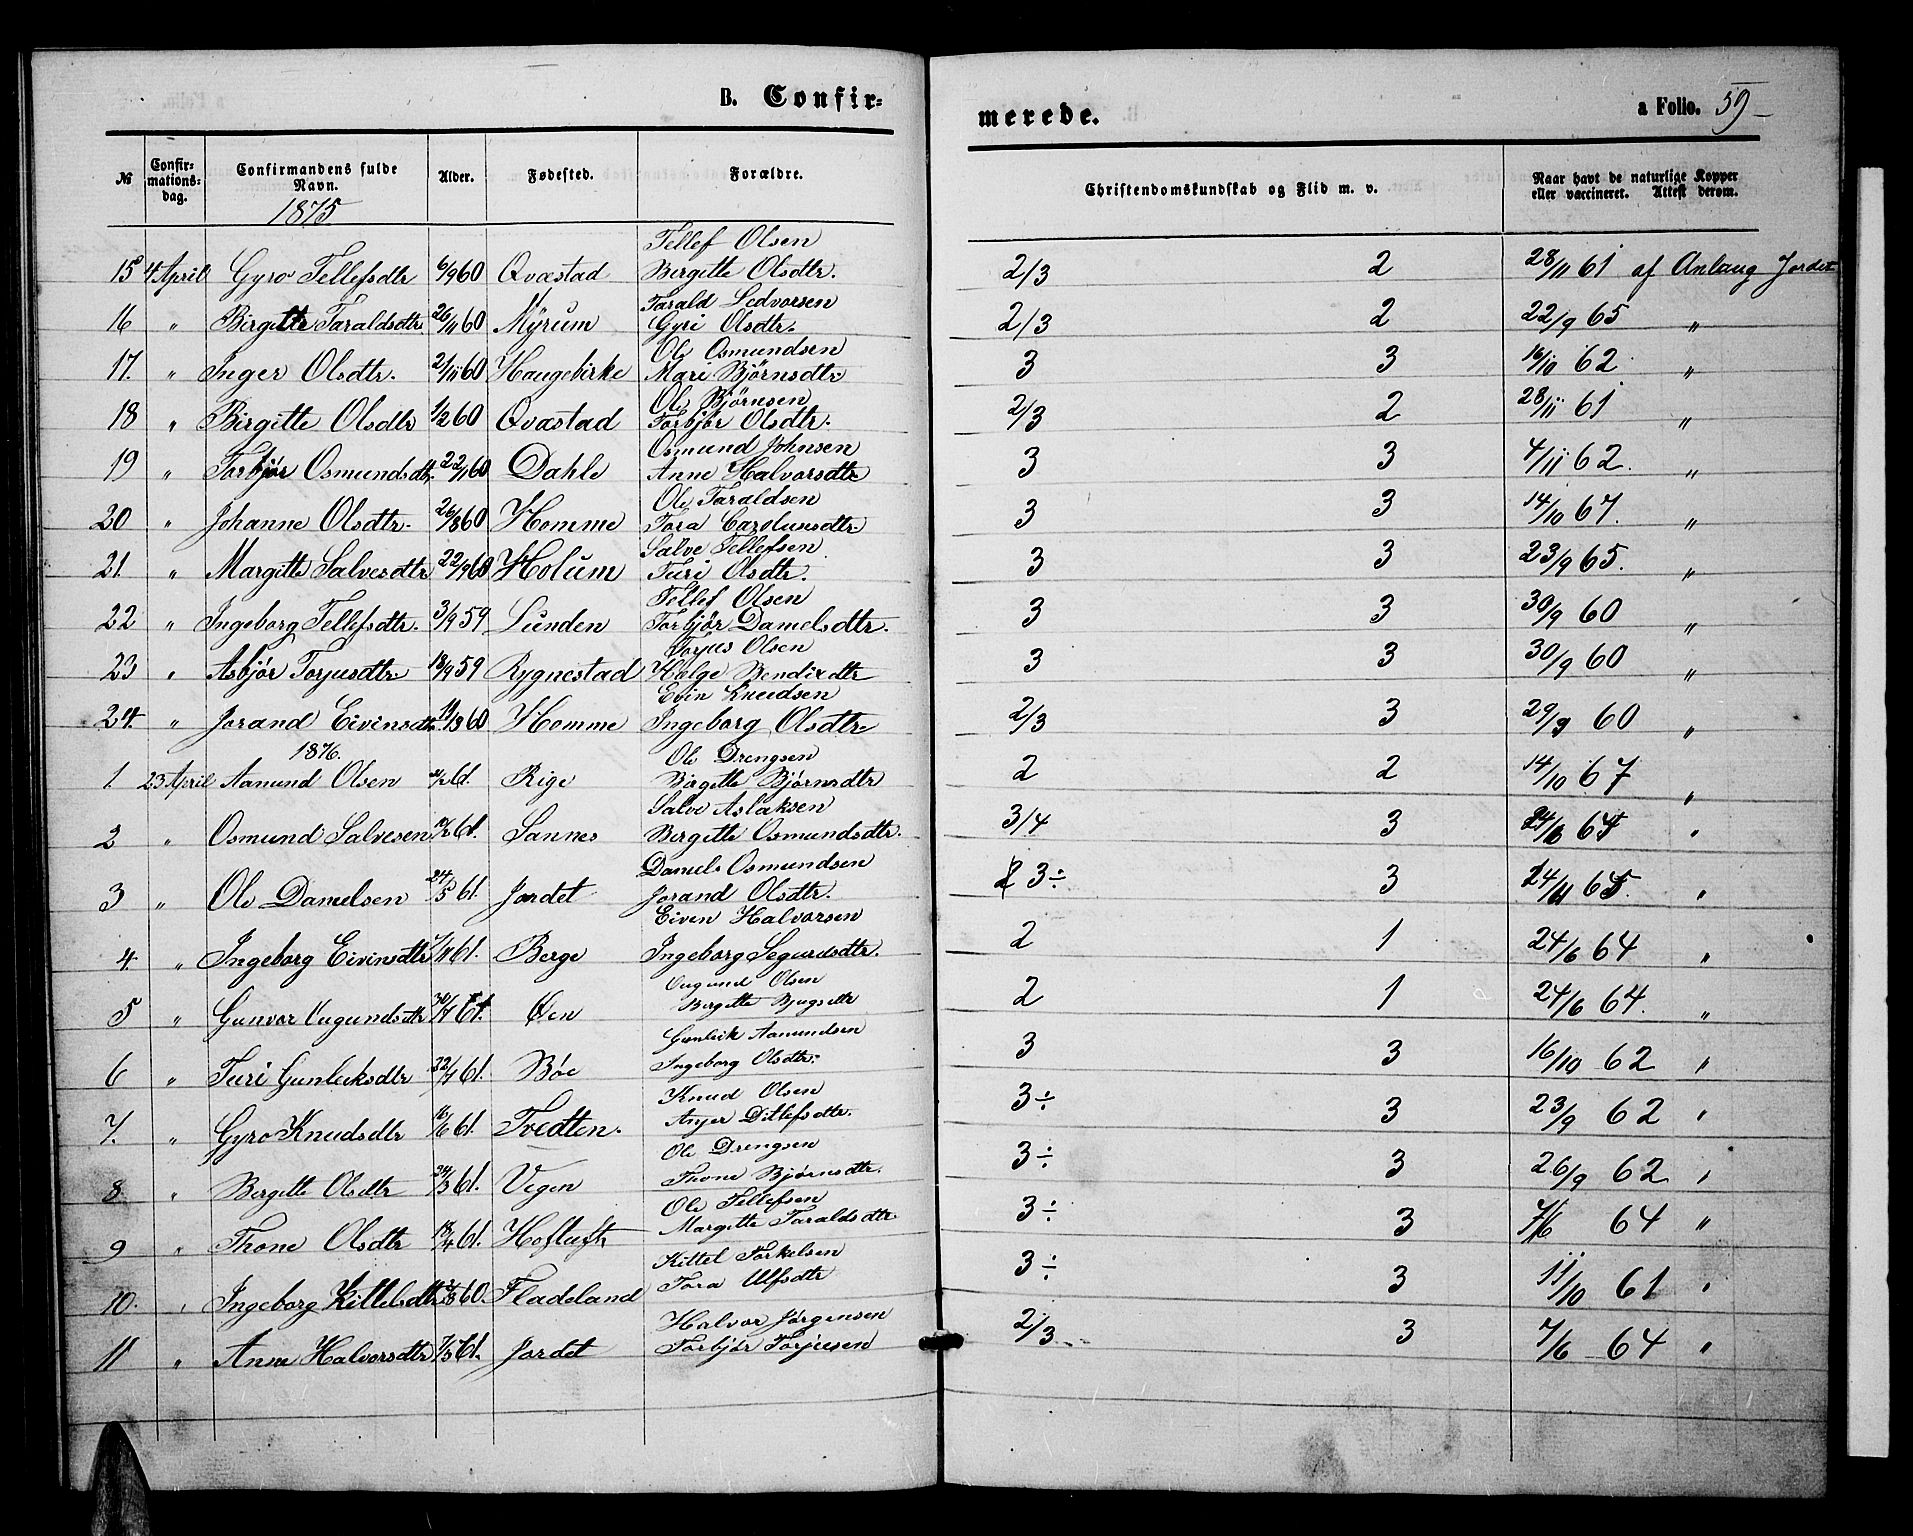 B. Confir=
merede.
a Folio. 59
№ Confir=mations=dag. Confirmandens fulde Navn. Alder. Fødested. Forældre. Christendomskundskab og Flid m. v. Naar havt de naturlige Kopper eller vaccineret. Attest derom.
1875
Tellef Olsen
15 4 April Gyro Tellefsdtr 6/9 60 Qvæstad Bergitte Olsdtr. 2/3 2 28/11 61 af Anlaug Jordet
Tarald Ledvorsen
16 " Birgitte Taraldsdtr. 26/11 60 Myrum Gyri Olsdtr. 2/3 2 22/9 65 "
Ole Osmundsen
17. " Inger Olsdtr. 21/11 60 Haugebirke Mari Bjørnsdtr 3 3 16/10 62 "
Ole Bjørnsen
18 " Birgitte Olsdtr 1/2 60 Qvæstad Torbjør Olsdtr. 2/3 2 28/11 61 "
Osmund Johnsen
19 " Torbjør Osmundsdtr. 60 Dahle Anne Halvorsdtr 3 3 4/11 62. "
Ole Taraldsen
20 " Johanne Olsdtr. 26/8 60 Homme Tora Carolunsdtr. 3 3 14/10 67. "
Salve Tellefsen
21. " Margitte Salvesdtr 22/9 60 Holum Turi Olsdtr. 3 3 23/9 65. "
Tellef Olsen
22 " Ingeborg Tellefsdtr. 3/9 59 Lunden Torbjør Danielsdtr. 3 3 30/9 60 "
Torjus Olsen
23 " Asbjør Torjusdtr 18/9 59 Rygnestad Helge Bendixdtr 3 3 30/9 60 "
Evin Knudsen
24. " Jorand Eivinsdtr 14/3 60 Homme Ingeborg Olsdtr 2/3 3 29/9 60 "
1876.
Ole Drengsen
1. 23 April Aamund Olsen 61. Rige Birgitte Bjørnsdtr 2 2 14/10 67 "
Salve Aslaksen
2 " Osmund Salvesen 61. Sannes Bergitte Osmundsdtr. 3/4 3 24/6 "
Daniel Osmundsen
3 " Ole Danielsen 24/5 61. Jordet Jorand Olsdtr. 3÷ 3 24/11 65. "
Eiven Halvorsen
4. " Ingeborg Eivinsdtr 61. Berge Ingeborg Segurdsdtr. 2 1 24/6 64 "
Vugund Olsen
5 " Gunvor Vugundsdtr 30/7 61. Øen Birgitte Bjugsdtr 2 1 24/6 64. "
Gunleik Aamundsen
6 " Turi Gunleiksdtr 61. Bøe Ingeborg Olsdtr. 3 3 16/10 62 "
Knud Olsen
7. " Gyro Knudsdtr 16/6 61. Tvedten. Anjer Ditlefsdtr. 3÷ 3 23/9 62 "
Ole Drengsen
8 " Bergitte Olsdtr 24/3 61. Vegen Thone Bjørnsdtr. 3÷ 3 26/9 62 "
Ole Tellefsen
9 " Thone Olsdtr 18/4 61. Hoftuft Margitte Taraldsdtr. 3÷ 3 7/6 64 "
Kittel Torkelsen
10. " Ingeborg Kittelsdtr 60. Fladeland Tora Ulfsdtr 3÷ 3 11/10 61 "
Halvor Jørgensen
11 " Anne Halvorsdtr 7/5 61. Jordet Torbjør Torjusen 2/3 3 7/6 64 "